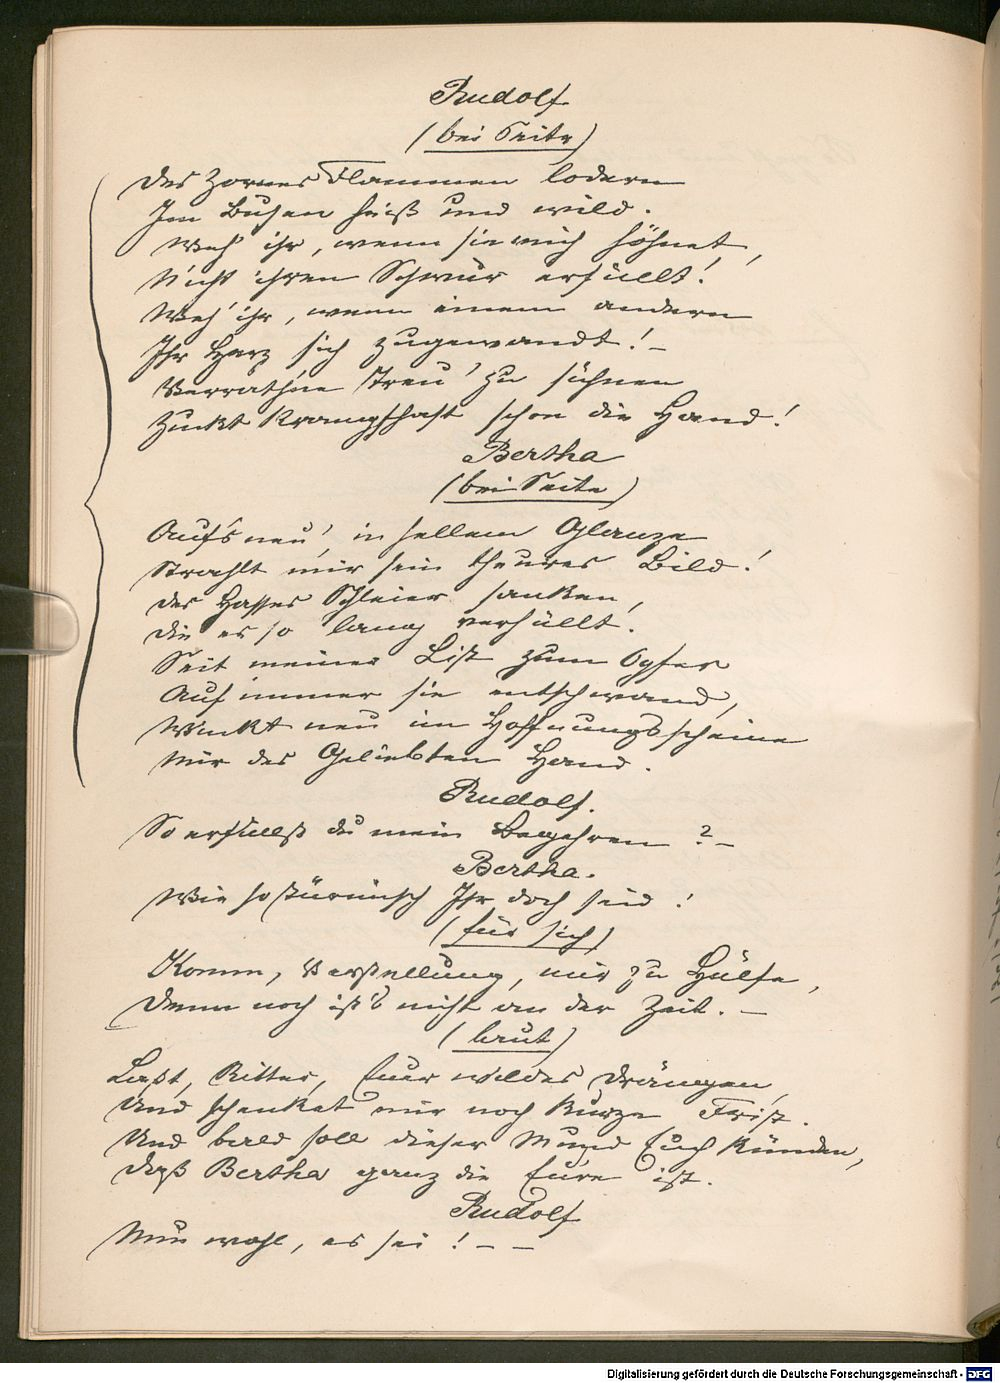 Rudolf
(bei Seite)
Des Zornes Flammen lodern
Im Busen heiß und wild.
Weh' ihr, wenn sie mich höhnet,
Nicht ihren Schwur erfüllt!
Weh' ihr, wenn einem andern
Ihr Herz sich zugewandt! –
Verrath'ne Treu' zu sühnen
Zuckt krampfhaft schon die Hand!
Bertha
(bei Seite)
Auf's neu', in hellem Glanze
Strahlt mir sein theures Bild!
Des Hasses Schleier sanken,
Die es so lang verhüllt.
Seit meiner List zum Opfer
Auf immer sie entschwand,
Winkt neu im Hoffnungsscheine
Mir des Geliebten Hand.
Rudolf.
So erfüllst du mein Begehren? –
Bertha.
Wie so stürmisch Ihr doch seid!
(für sich)
Komm, Verstellung, mir zu Hülfe,
Denn noch ist's nicht an der Zeit. –
(laut)
Laßt, Ritter, Euer wildes Drängen,
Und schenket mir noch kurze Frist.
Und bald soll dieser Mund Euch künden,
Daß Bertha ganz die Eure ist.
Rudolf
Nun wohl, es sei! – –
Digitalisierung gefördert durch die Deutsche Forschungsgemeinschaft - DFG